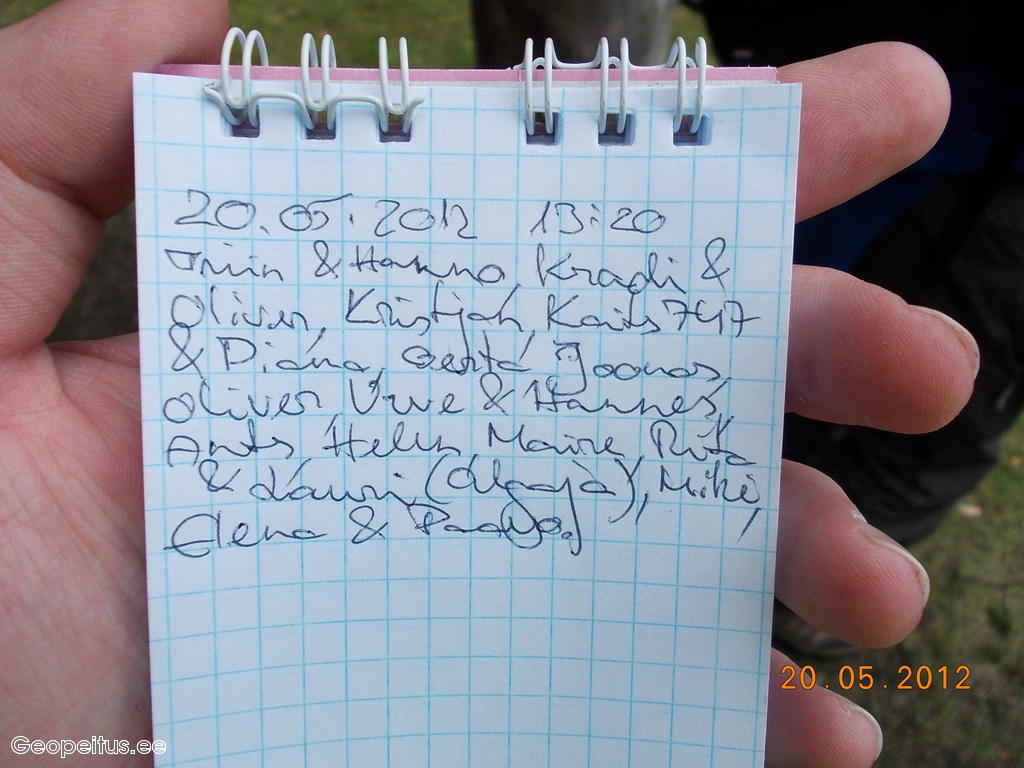 20.05.2012 13:20
Triin & Hanno, Kradi &
Oliver, Kristjah, Kaits747
& Diana, Gerta Joonas,
Oliver, Uwe & Hannes,
Ants Helen Maire, Rita
& Lauri, (Algaja), Mihk,
Elena & Paavo.
20.05.2012
Geopeitus.ee